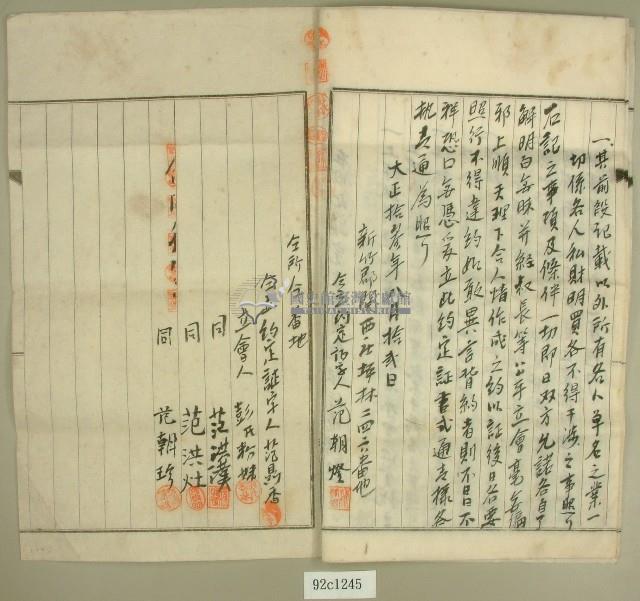 一其前段記載以外所有各人單名之業一
切係各人私財明買各不得干涉之事照了
右記之事項及條件一切即日双方允諾各自了
解明白無昧并經叔長等公平立會毫無偏
邪上順天理下合人情作成之約以証後日若要
照行不得違約如敢異言背約者則不日不
祥恐口無憑爰立此約定証書貳通壹樣各
執壹通為照了
大正拾參年八月拾貳日
新竹郡關西庄坪林二四六番地
仝立約定証字人 范朝燈
仝所仝番地
仝立約定証字人 范鼎香
立會人 彭氏粉妹
同 范洪漢
同 范洪灶
同 范朝珍
國史館臺灣文獻館
92c1245